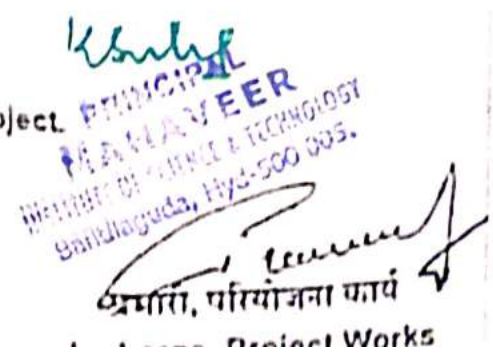 oject.
PRINCIPAL
MAHAVEER
INSTITUTE OF SCIENCE & TECHNOLOGY
Bandlaguda, Hyd-500 005.
प्रभारी, परियोजना कार्य
Project Works